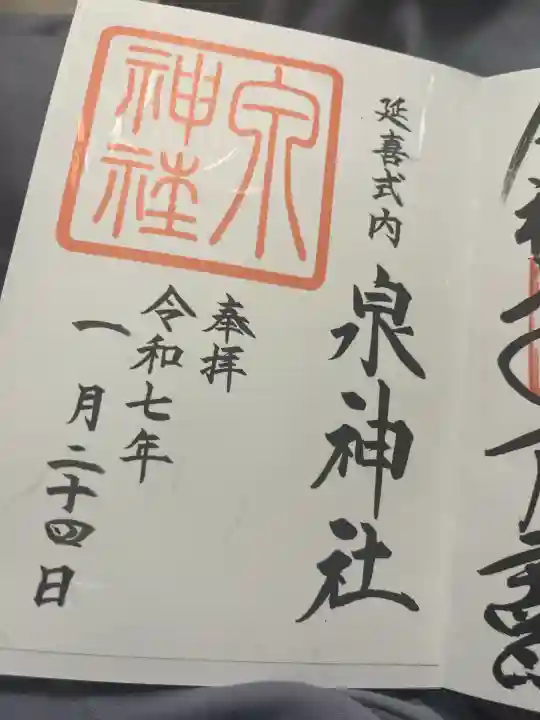 延喜式内 泉神社
奉拝
令和七年
一月二十四日
泉
神社